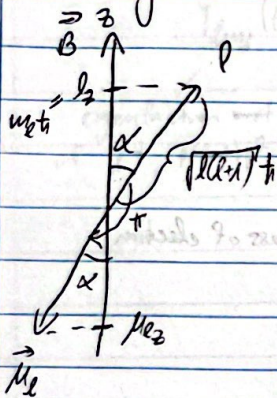 z
B⃗
l
m_ℓħ = l_z
α
√(l(l+1)) ħ
π
α
μ_ℓz
μ⃗_ℓ